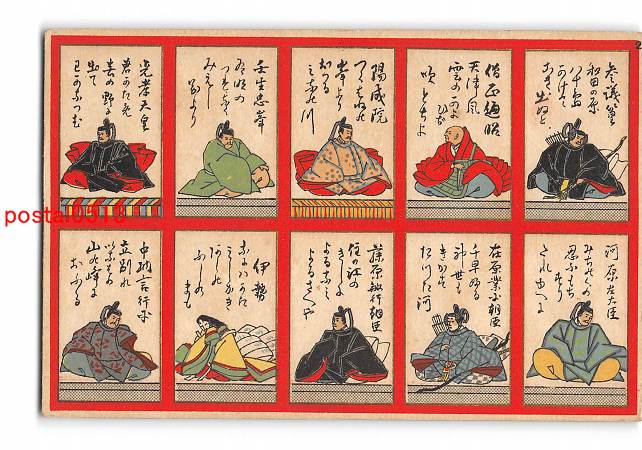 2
参議篁
和田の原
八十島
かけて
こぎ
出ぬと
僧正遍昭
天津風
雲のかよひぢ
吹とぢよ
陽成院
つくばねの
峯より
おつる
みなの川
壬生忠岑
有明の
つれなく
みえし
別より
光孝天皇
君のため
春の野に
出て
わかなつむ
河原左大臣
みちのくの
忍ぶもぢ
ずり
たれゆへに
在原業平朝臣
千早ふる
神世も
きかず
たつた河
藤原敏行朝臣
住の江の
きしに
よるなみ
よるさへや
伊勢
なにはがた
みじかき
あしの
ふしの
まも
中納言行平
立別れ
いなばの
山の峰に
おふる
postal0510